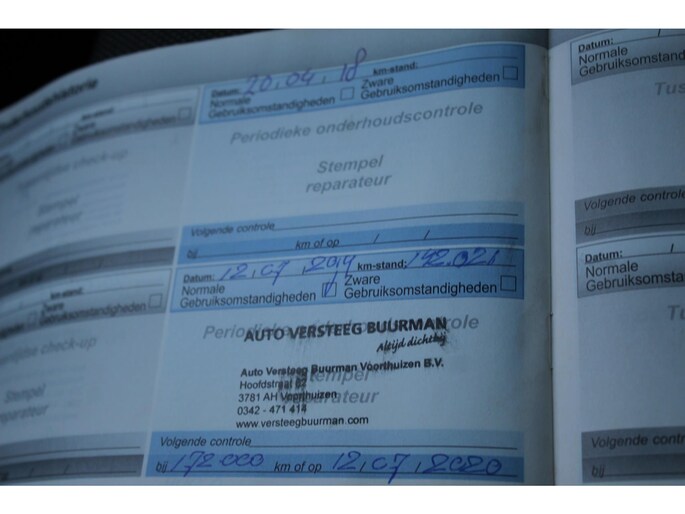 Datum: 20.04.18 km-stand:
Normale Gebruiksomstandigheden
Zware Gebruiksomstandigheden
Periodieke onderhoudscontrole
Stempel
reparateur
Volgende controle
bij km of op / /
Datum: 12.07.2019 km-stand: 142.021
Normale Gebruiksomstandigheden
Zware Gebruiksomstandigheden
Periodieke onderhoudscontrole
AUTO VERSTEEG BUURMAN
Altijd dichtbij
Auto Versteeg Buurman Voorthuizen B.V.
Hoofdstraat
3781 AH Voorthuizen
0342 - 471 414
www.versteegbuurman.com
Stempel
reparateur
Volgende controle
bij 172000 km of op 12.07.2020
km-stand:
Gebruiksomstandigheden
check-up
Stempel
reparateur
km-stand:
Gebruiksomstandigheden
check-up
Stempel
reparateur
Datum: /
Normale
Gebruiksomstandigheden
Volgende controle
bij
Datum: /
Normale
Gebruiksomstandigheden
Volgende controle
bij